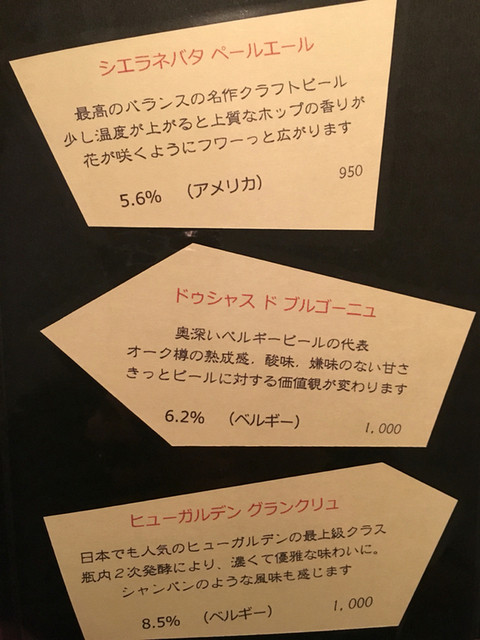 シエラネバタ ペールエール
最高のバランスの名作クラフトビール
少し温度が上がると上質なホップの香りが
花が咲くようにフワーっと広がります
5.6% （アメリカ） 950
ドゥシャス ド ブルゴーニュ
奥深いベルギービールの代表
オーク樽の熟成感，酸味，嫌味のない甘さ
きっとビールに対する価値観が変わります
6.2% （ベルギー） 1,000
ヒューガルデン グランクリュ
日本でも人気のヒューガルデンの最上級クラス
瓶内２次発酵により、濃くて優雅な味わいに。
シャンパンのような風味も感じます
8.5% （ベルギー） 1,000